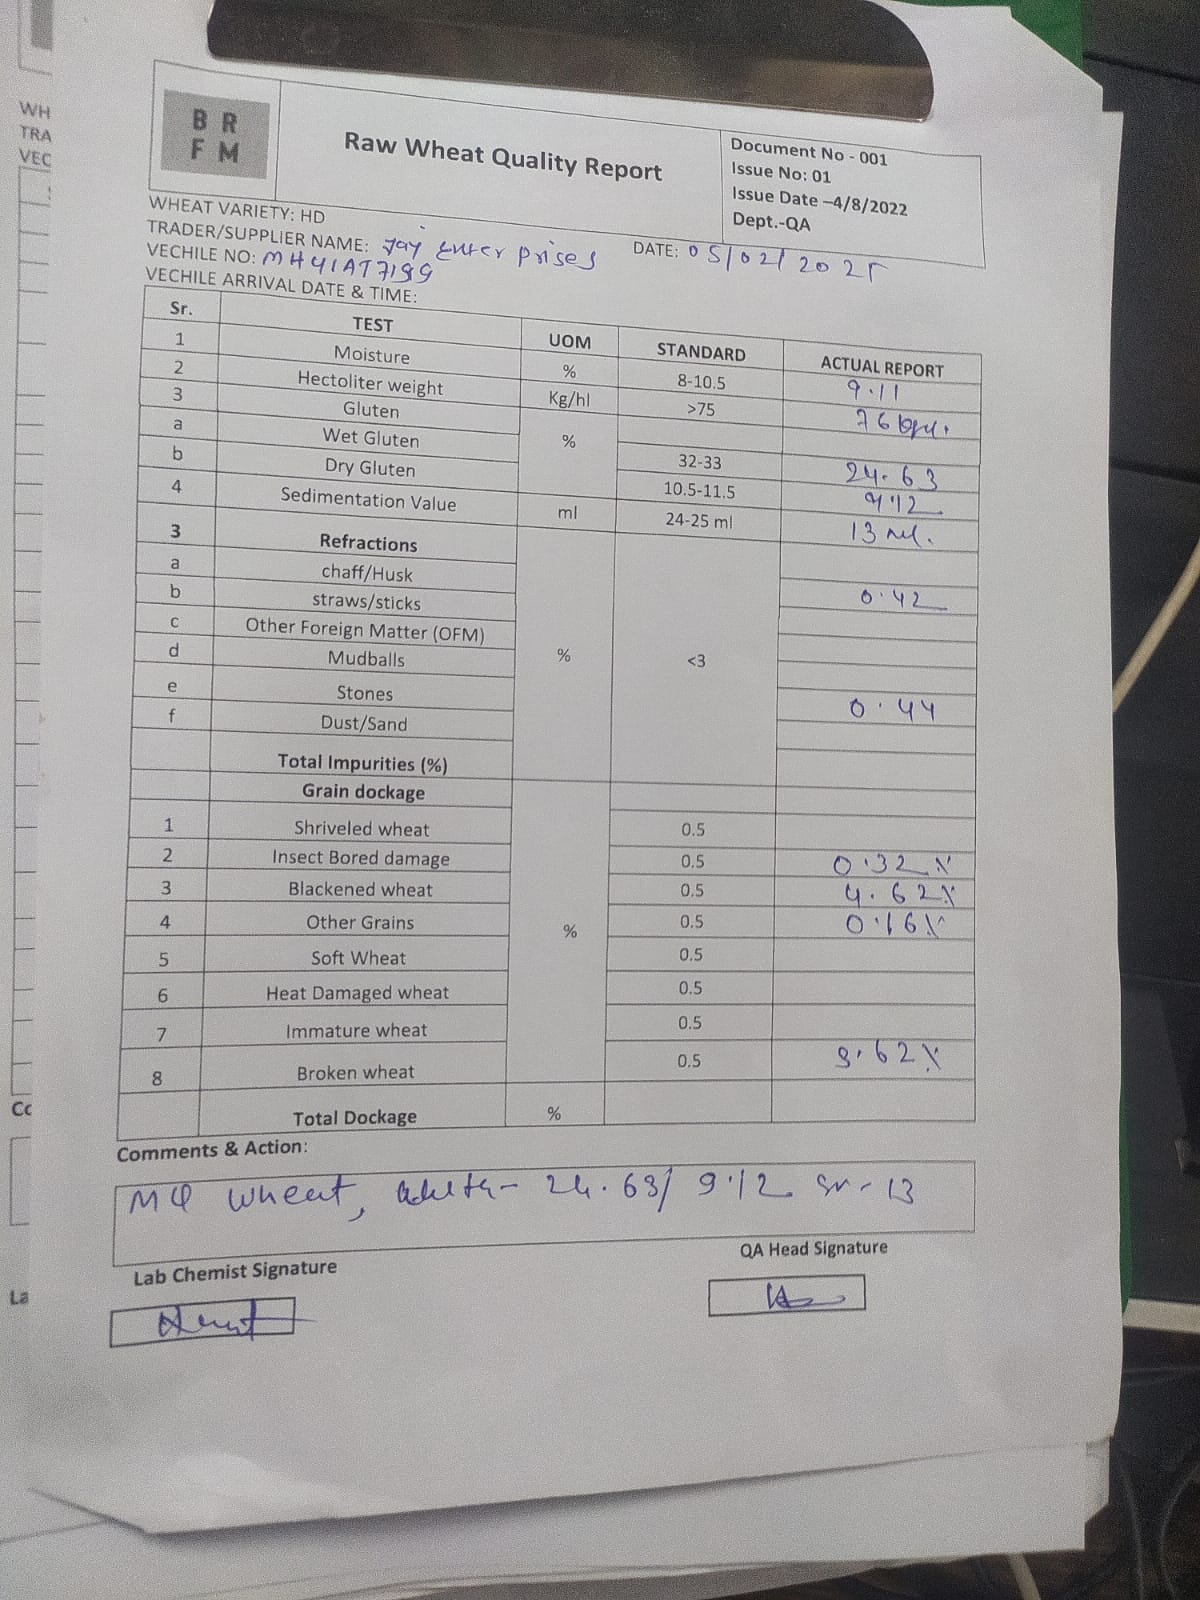 WH
TRA
VEC
B R
F M
Raw Wheat Quality Report
Document No - 001
Issue No: 01
Issue Date –4/8/2022
Dept.-QA
WHEAT VARIETY: HD
TRADER/SUPPLIER NAME: Jay Enter prises DATE: 05/02/2025
VECHILE NO: MH41AT7199
VECHILE ARRIVAL DATE & TIME:
Sr. TEST UOM STANDARD ACTUAL REPORT
1 Moisture % 8-10.5 9.11
2 Hectoliter weight Kg/hl >75 76
3 Gluten %
a Wet Gluten 32-33 24.63
b Dry Gluten 10.5-11.5 9.12
4 Sedimentation Value ml 24-25 ml 13 ml.
3 Refractions % <3
a chaff/Husk
b straws/sticks 0.42
c Other Foreign Matter (OFM)
d Mudballs
e Stones
f Dust/Sand 0.44
Total Impurities (%)
Grain dockage %
1 Shriveled wheat 0.5
2 Insect Bored damage 0.5 0.32%
3 Blackened wheat 0.5 4.62%
4 Other Grains 0.5 0.16%
5 Soft Wheat 0.5
6 Heat Damaged wheat 0.5
7 Immature wheat 0.5
8 Broken wheat 0.5 3.62%
Total Dockage %
Comments & Action:
wheat, 24.63/ 9.12 13
Lab Chemist Signature QA Head Signature
Cc
La